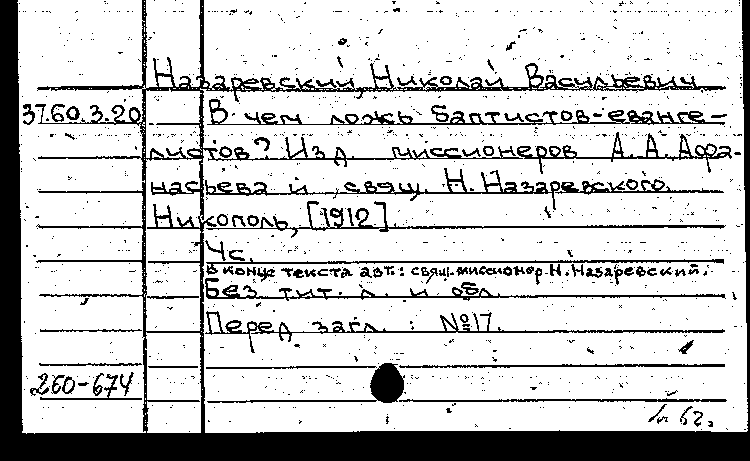 Назаревский, Николай Васильевич
37.60.3.20 В чем ложь баптистов-еванге-
листов? Изд. миссионеров А.А. Афа-
насьева и свящ. Н. Назаревского.
Никополь, [1912].
4с.
В конце текста авт.: свящ.-миссионер Н. Назаревский.
Без тит. л. и обл.
Перед загл.: №17.
260-674
62г